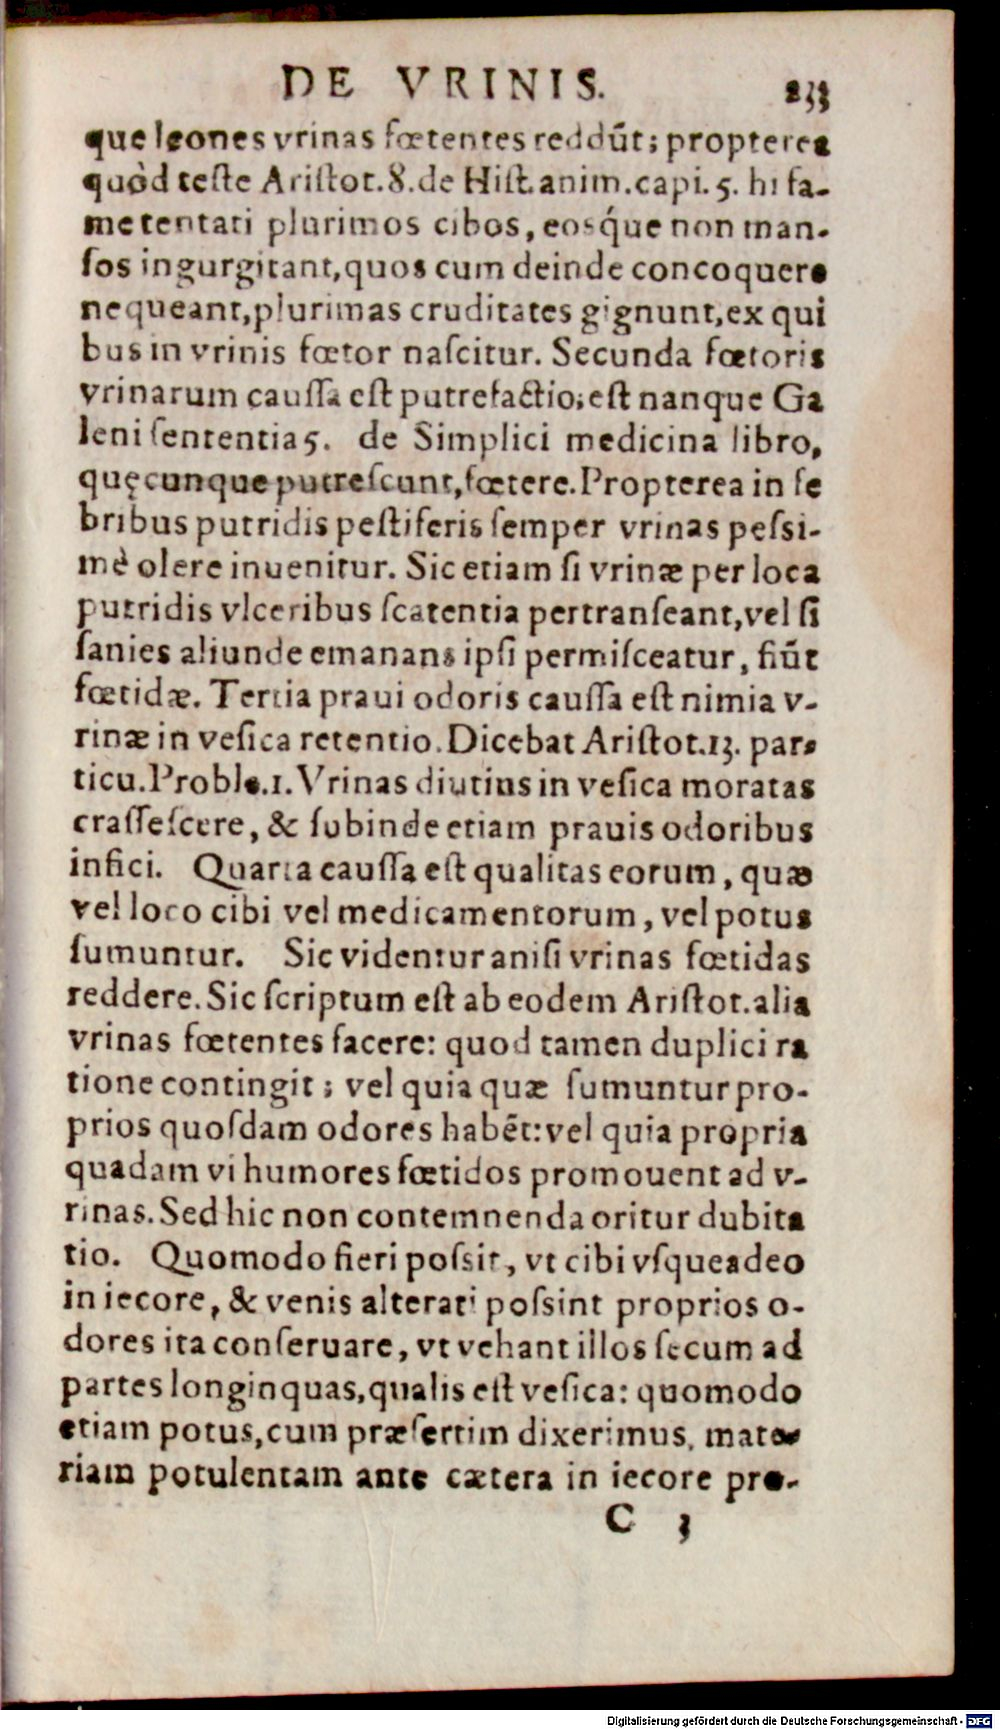 DE VRINIS. 233
que leones vrinas fœtentes reddūt; propterea
quòd teste Aristot.8.de Hist.anim.capi.5. hi fa-
me tentati plurimos cibos, eosq́ue non man-
sos ingurgitant,quos cum deinde concoquere
nequeant,plurimas cruditates gignunt,ex qui
bus in vrinis fœtor nascitur. Secunda fœtoris
vrinarum caussa est putrefactio;est nanque Ga
leni sententia 5. de Simplici medicina libro,
quęcunque putrescunt,fœtere.Propterea in fe
bribus putridis pestiferis semper vrinas pessi-
mè olere inuenitur. Sic etiam si vrinæ per loca
putridis vlceribus scatentia pertranseant,vel si
sanies aliunde emanans ipsi permisceatur, fiūt
fœtidæ. Tertia praui odoris caussa est nimia v-
rinæ in vesica retentio.Dicebat Aristot.13. par-
ticu.Proble.1.Vrinas diutius in vesica moratas
crassescere, & subinde etiam prauis odoribus
infici. Quarta caussa est qualitas eorum, quæ
vel loco cibi vel medicamentorum, vel potus
sumuntur. Sic videntur anisi vrinas fœtidas
reddere.Sic scriptum est ab eodem Aristot.alia
vrinas fœtentes facere: quod tamen duplici ra
tione contingit; vel quia quæ sumuntur pro-
prios quosdam odores habēt:vel quia propria
quadam vi humores fœtidos promouent ad v-
rinas.Sed hic non contemnenda oritur dubita
tio. Quomodo fieri possit, vt cibi vsqueadeo
in iecore, & venis alterati possint proprios o-
dores ita conseruare, vt vehant illos secum ad
partes longinquas,qualis est vesica: quomodo
etiam potus,cum præsertim dixerimus, mate-
riam potulentam ante cætera in iecore pro-
C 3
Digitalisierung gefördert durch die Deutsche Forschungsgemeinschaft - DFG